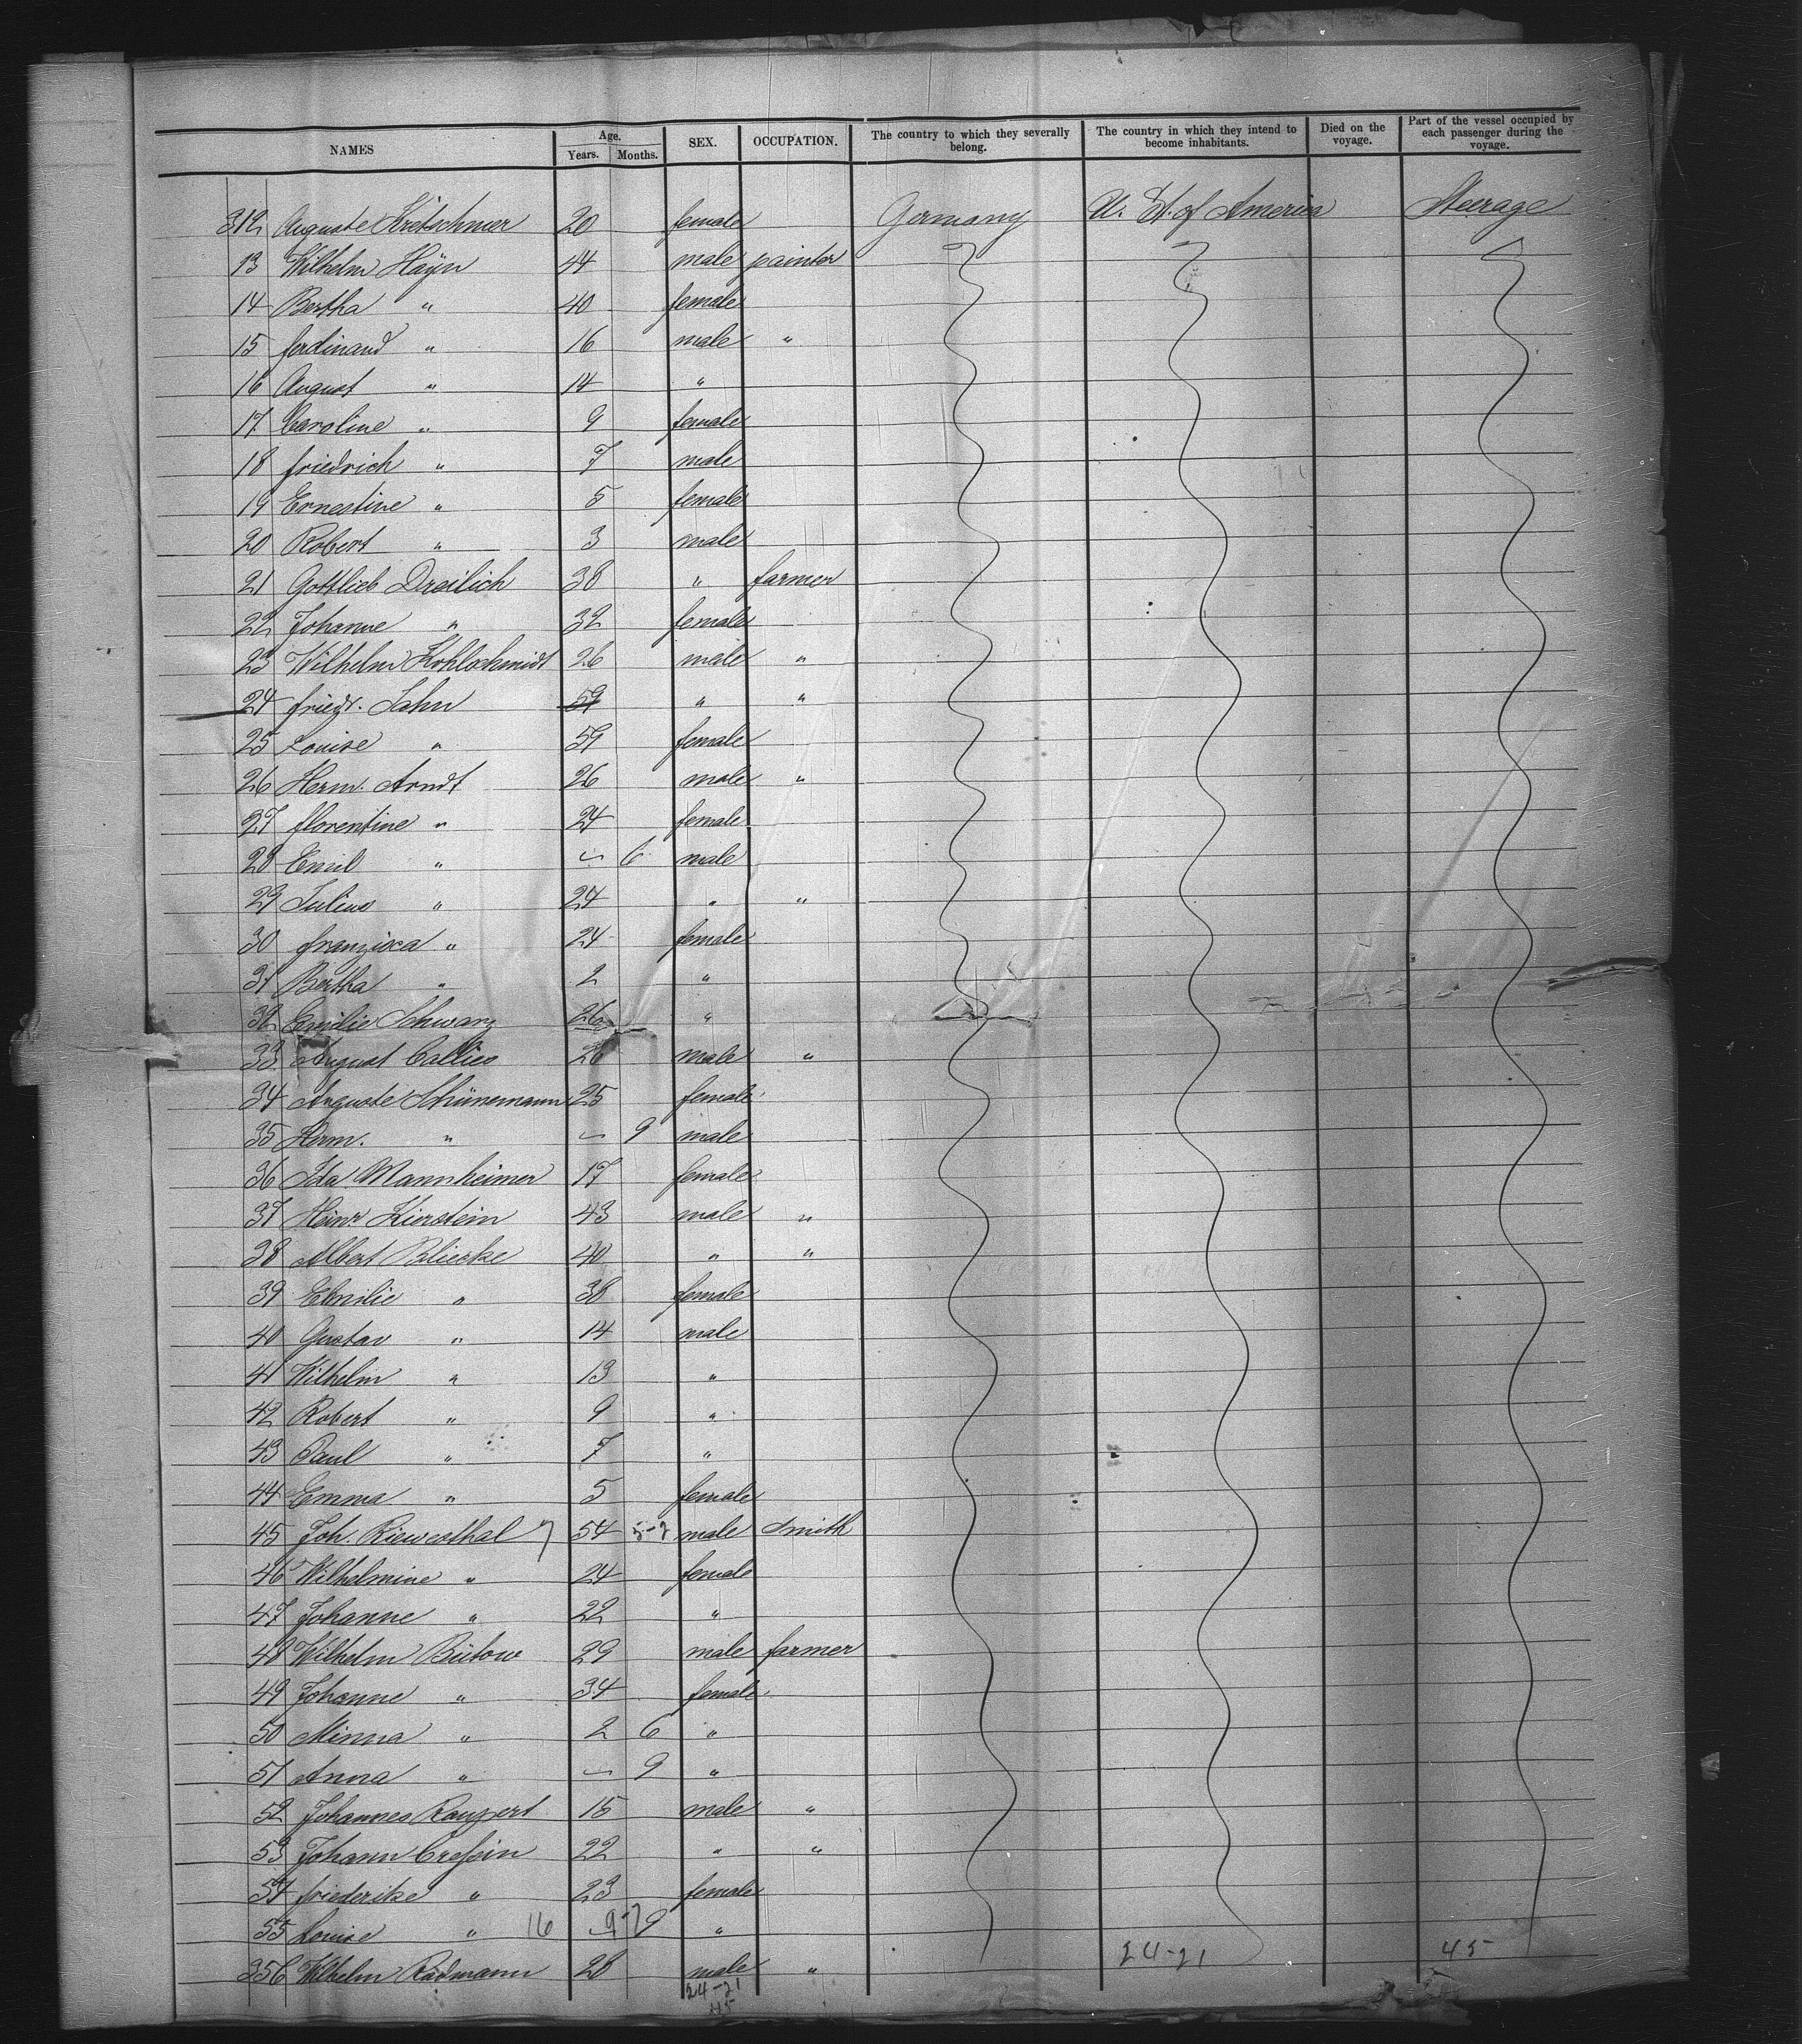 NAMES Age. Years. Months. SEX. OCCUPATION. The country to which they severally belong. The country in which they intend to become inhabitants. Died on the voyage. Part of the vessel occupied by each passenger during the voyage.
312 Auguste Kretschmer 20 female Germany U. St. of America Steerage
13 Wilhelm Hayn 44 male painter
14 Bertha " 40 female
15 Ferdinand " 16 male "
16 August " 14 "
17 Caroline " 9 female
18 Friedrich " 7 male
19 Ernestine " 5 female
20 Robert " 3 male
21 Gottlieb Dreilich 38 " farmer
22 Johanne " 32 female
23 Wilhelm Kohlschmidt 26 male "
24 Friedr. Jahn 59 " "
25 Louise " 59 female
26 Herm. Arndt 26 male "
27 Florentine " 24 female
28 Emil " – 6 male
29 Julius " 24 " "
30 Franzisca " 24 female
31 Bertha " 2 "
32 Emilie Schwarz 26 "
33 August Callies 26 male "
34 Auguste Schünemann 25 female
35 Herm. " – 9 male
36 Ida Mannheimer 17 female
37 Heinr. Kierstein 43 male "
38 Albert Bliecke 40 " "
39 Emilie " 38 female
40 Gustav " 14 male
41 Wilhelm " 13 "
42 Robert " 9 "
43 Paul " 7 "
44 Emma " 5 female
45 Joh. Riewesthal 7 54 male smith
46 Wilhelmine " 24 female
47 Johanne " 22 "
48 Wilhelm Bütow 29 male farmer
49 Johanne " 34 female
50 Minna " 2 6 "
51 Anna " – 9 "
52 Johannes 15 male "
53 Johann Creßin 22 " "
54 Friederike " 23 female
55 Louise " 16 – 9-7 9 "
356 Wilhelm Radmann 28 male "
24-21 45
24-21
45